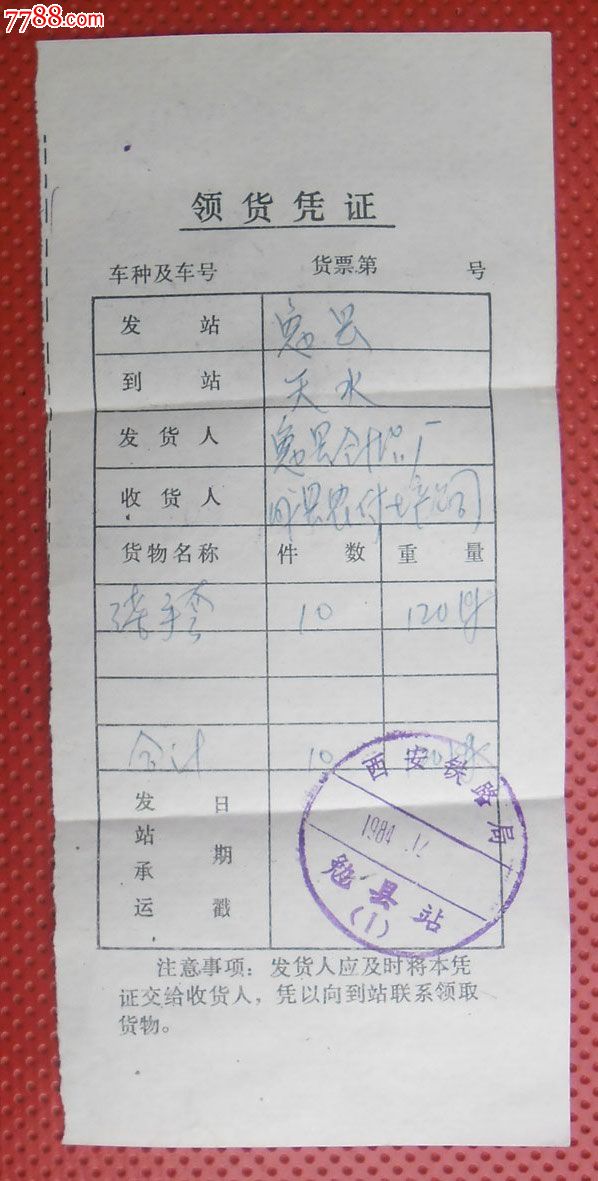 7788.com
领货凭证
车种及车号 货票第 号
发站 勉县
到站 天水
发货人 勉县 厂
收货人 县农付 公司
货物名称 件数 重量
10 120
合计 10
发站承运 日期戳
西安铁路局
1984.12
勉县站
(1)
注意事项:发货人应及时将本凭
证交给收货人,凭以向到站联系领取
货物。